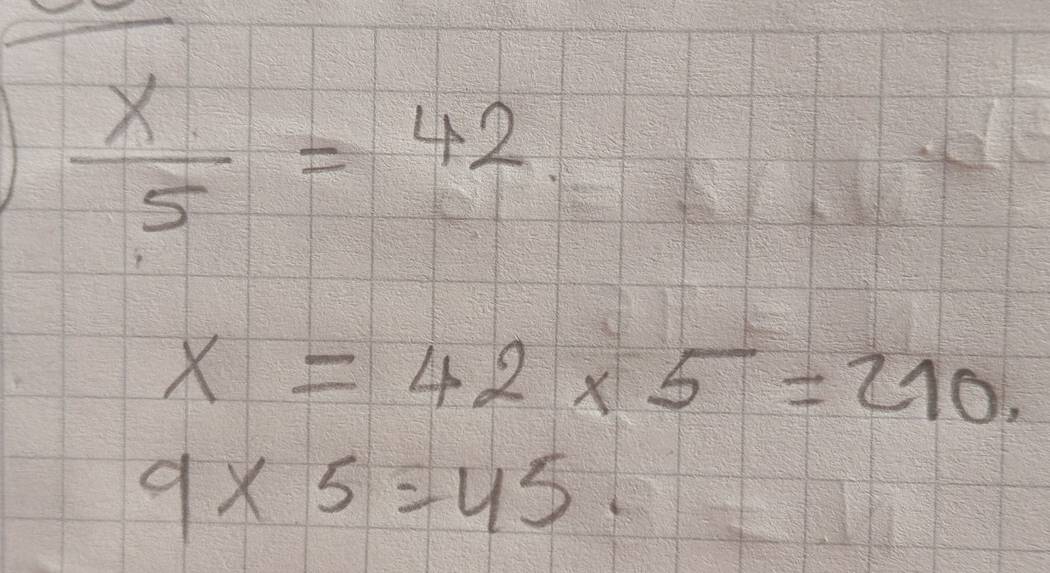 x/5 = 42.
x = 42 x 5 = 210.
9 x 5 = 45.